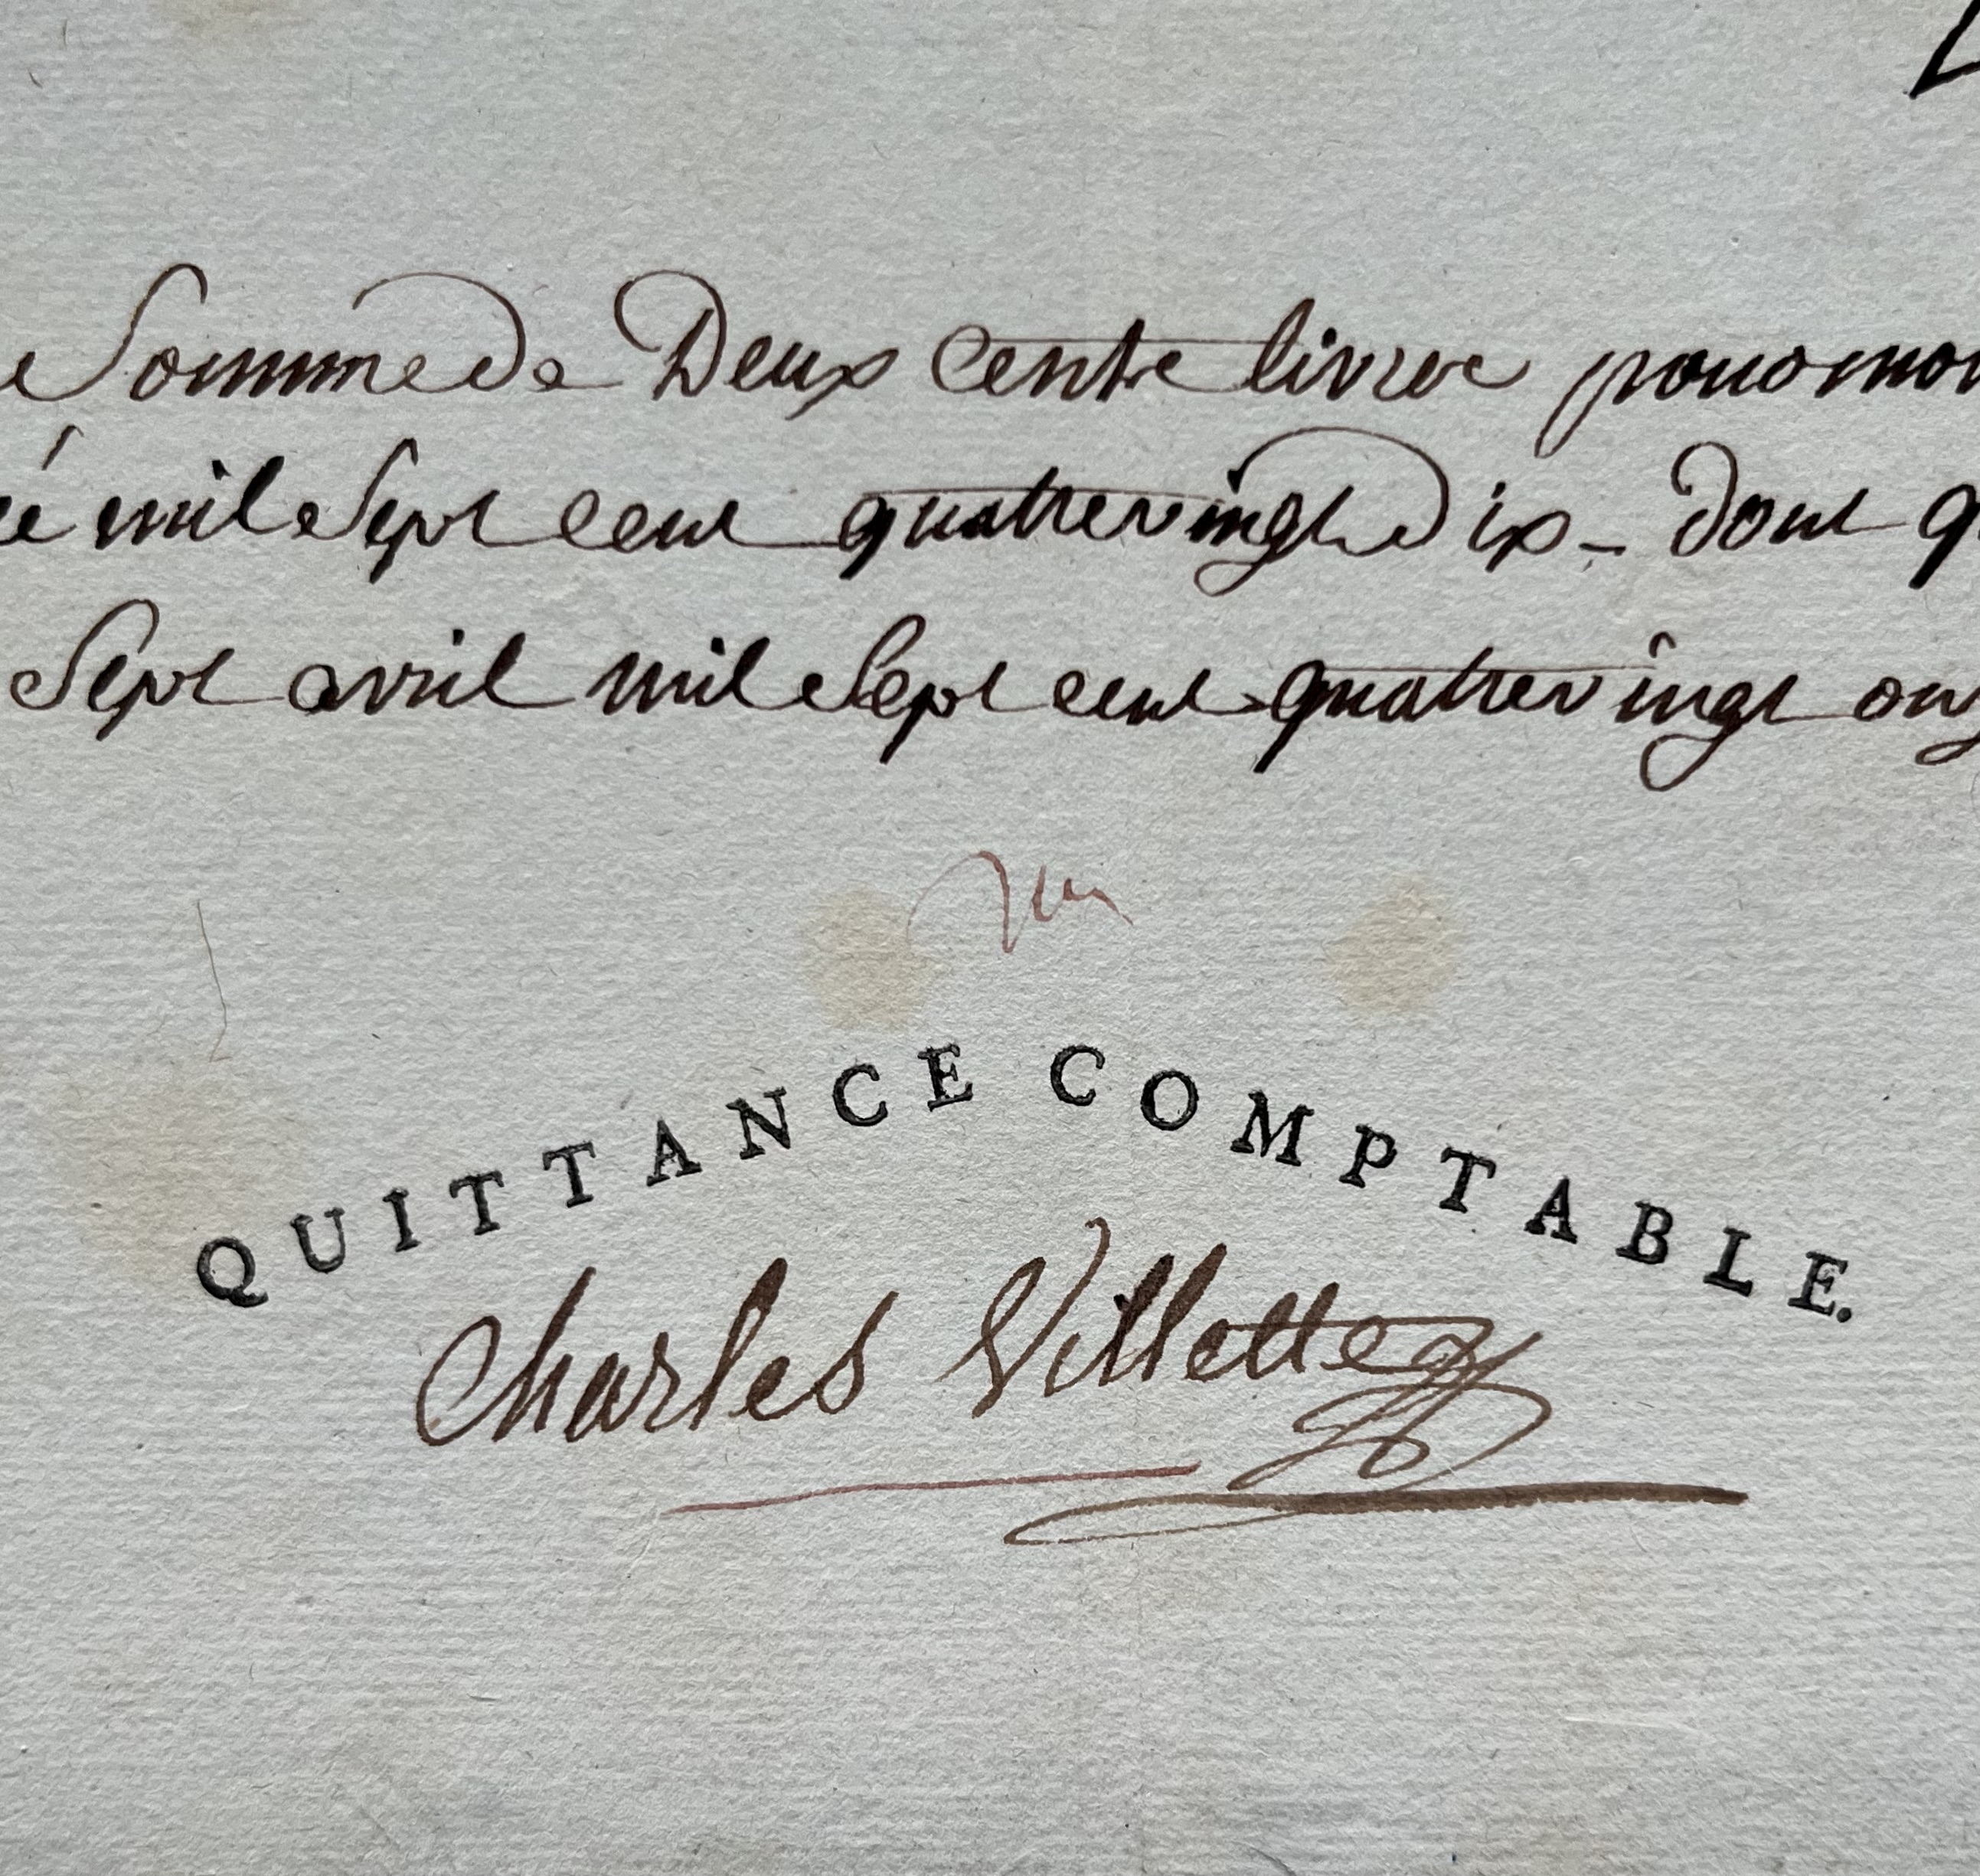 Somme de Deux Cents livres pour mon
é mil Sept cent quatrevingt Dix - dont q
Sept avril mil Sept cent quatrevingt onz
QUITTANCE COMPTABLE.
Charles Villette